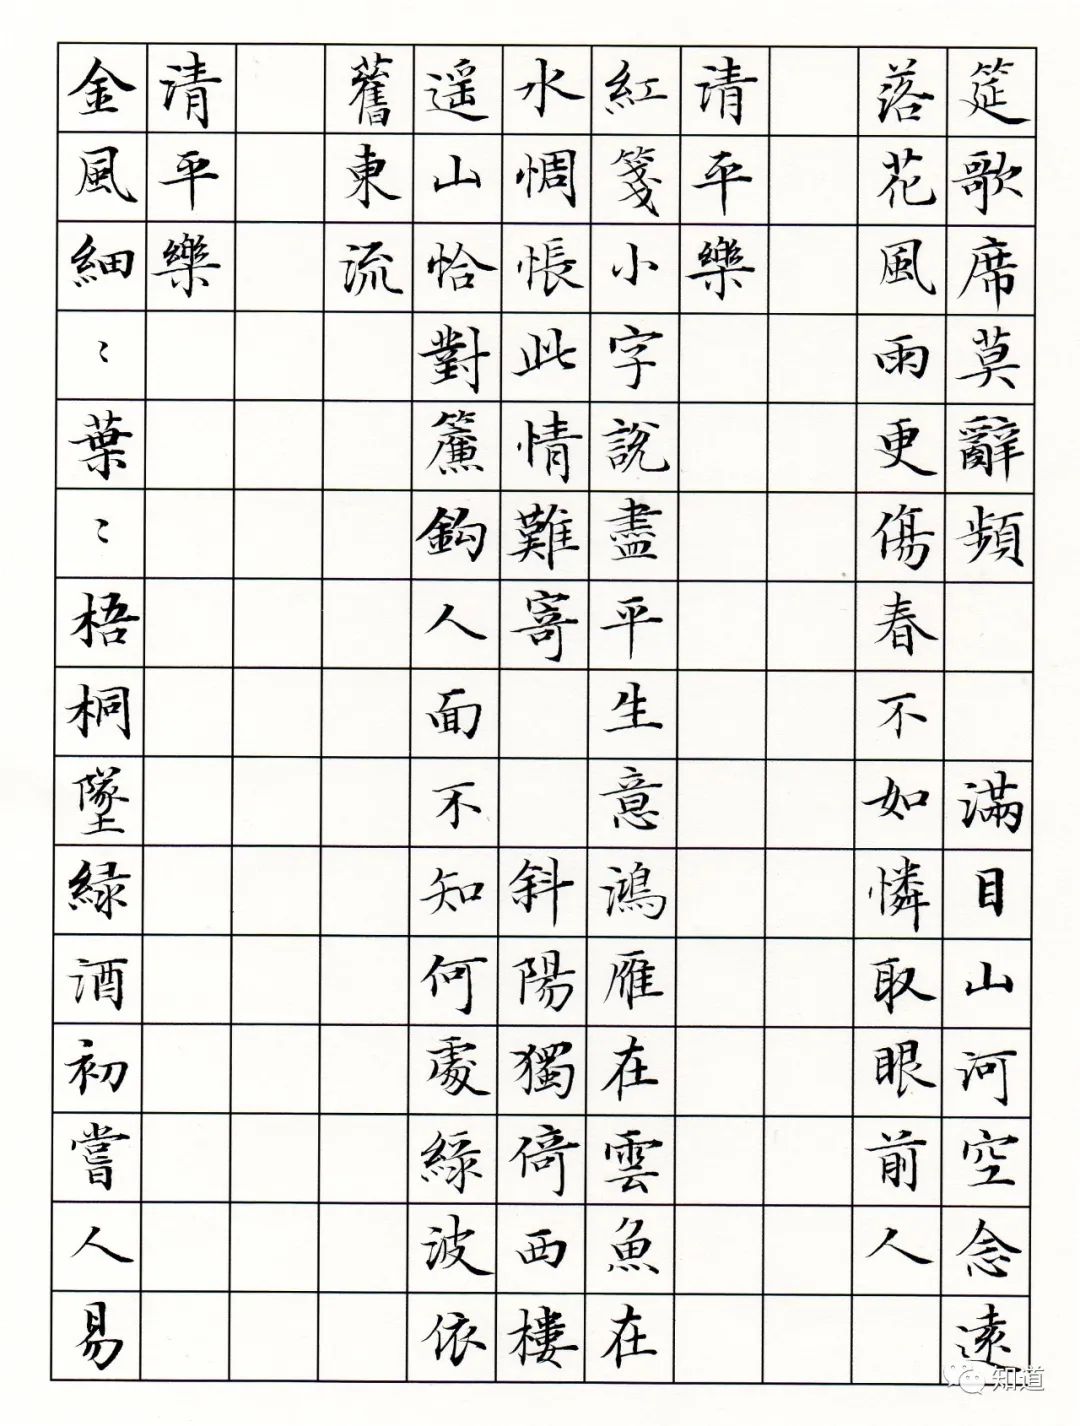 筵歌席莫辭頻 滿目山河空念遠
落花風雨更傷春不如憐取眼前人
清平樂
紅箋小字說盡平生意鴻雁在雲魚在
水惆悵此情難寄 斜陽獨倚西樓
遥山恰對簾鈎人面不知何處綠波依
舊東流
清平樂
金風細〻葉〻梧桐墜緑酒初嘗人易
知道